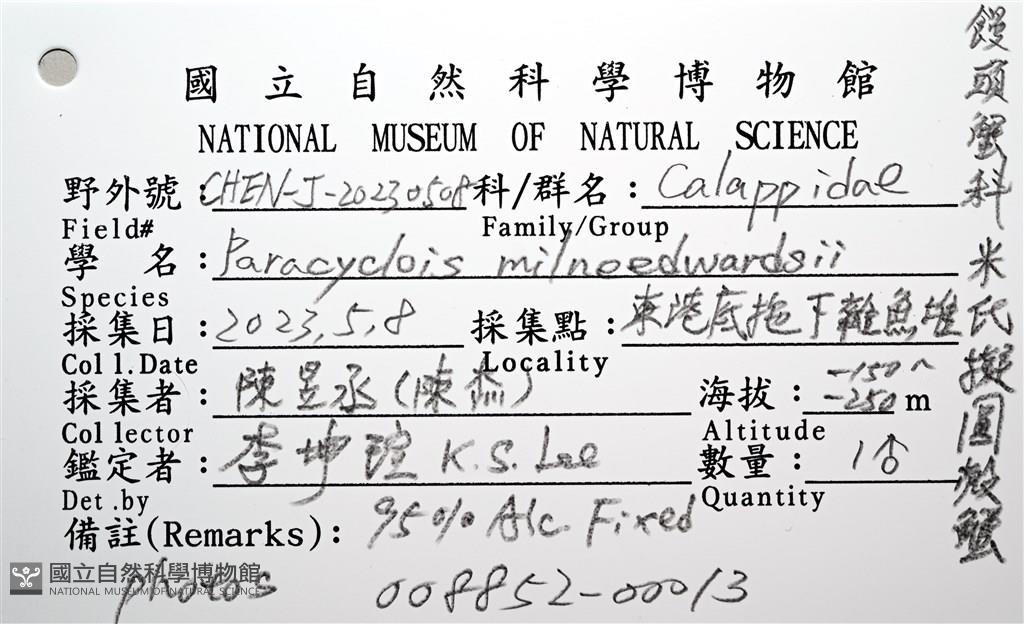 國立自然科學博物館
NATIONAL MUSEUM OF NATURAL SCIENCE
野外號：CHEN-J-20230508 科/群名：Calappidae
Field# Family/Group
學 名：Paracyclois milneedwardsii
Species
採集日：2023,5,8 採集點：東港底拖下雜魚堆
Coll.Date Locality
採集者：陳昱丞(陳 )
海拔：-150~-250 m
Collector Altitude
鑑定者：李坤瑄 K.S. Lee 數量：1♂
Det.by Quantity
備註(Remarks)：95% Alc. Fixed
photos 008852-00013
國立自然科學博物館
NATIONAL MUSEUM OF NATURAL SCIENCE
饅頭蟹科 米氏擬圓殼蟹